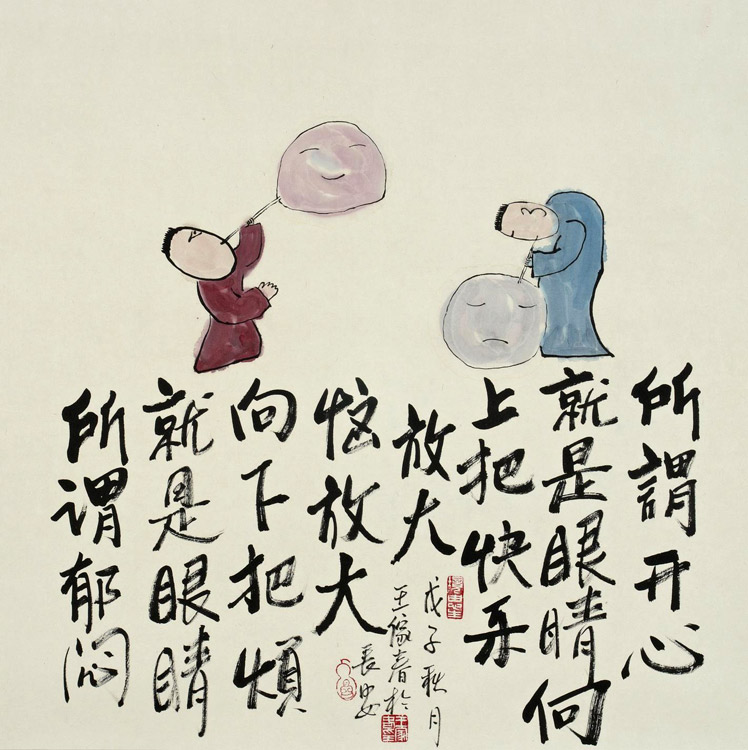 所謂开心
就是眼睛向
上把快乐
放大
所谓郁闷
就是眼睛
向下把煩
恼放大
戊子秋月
王家春於
长安